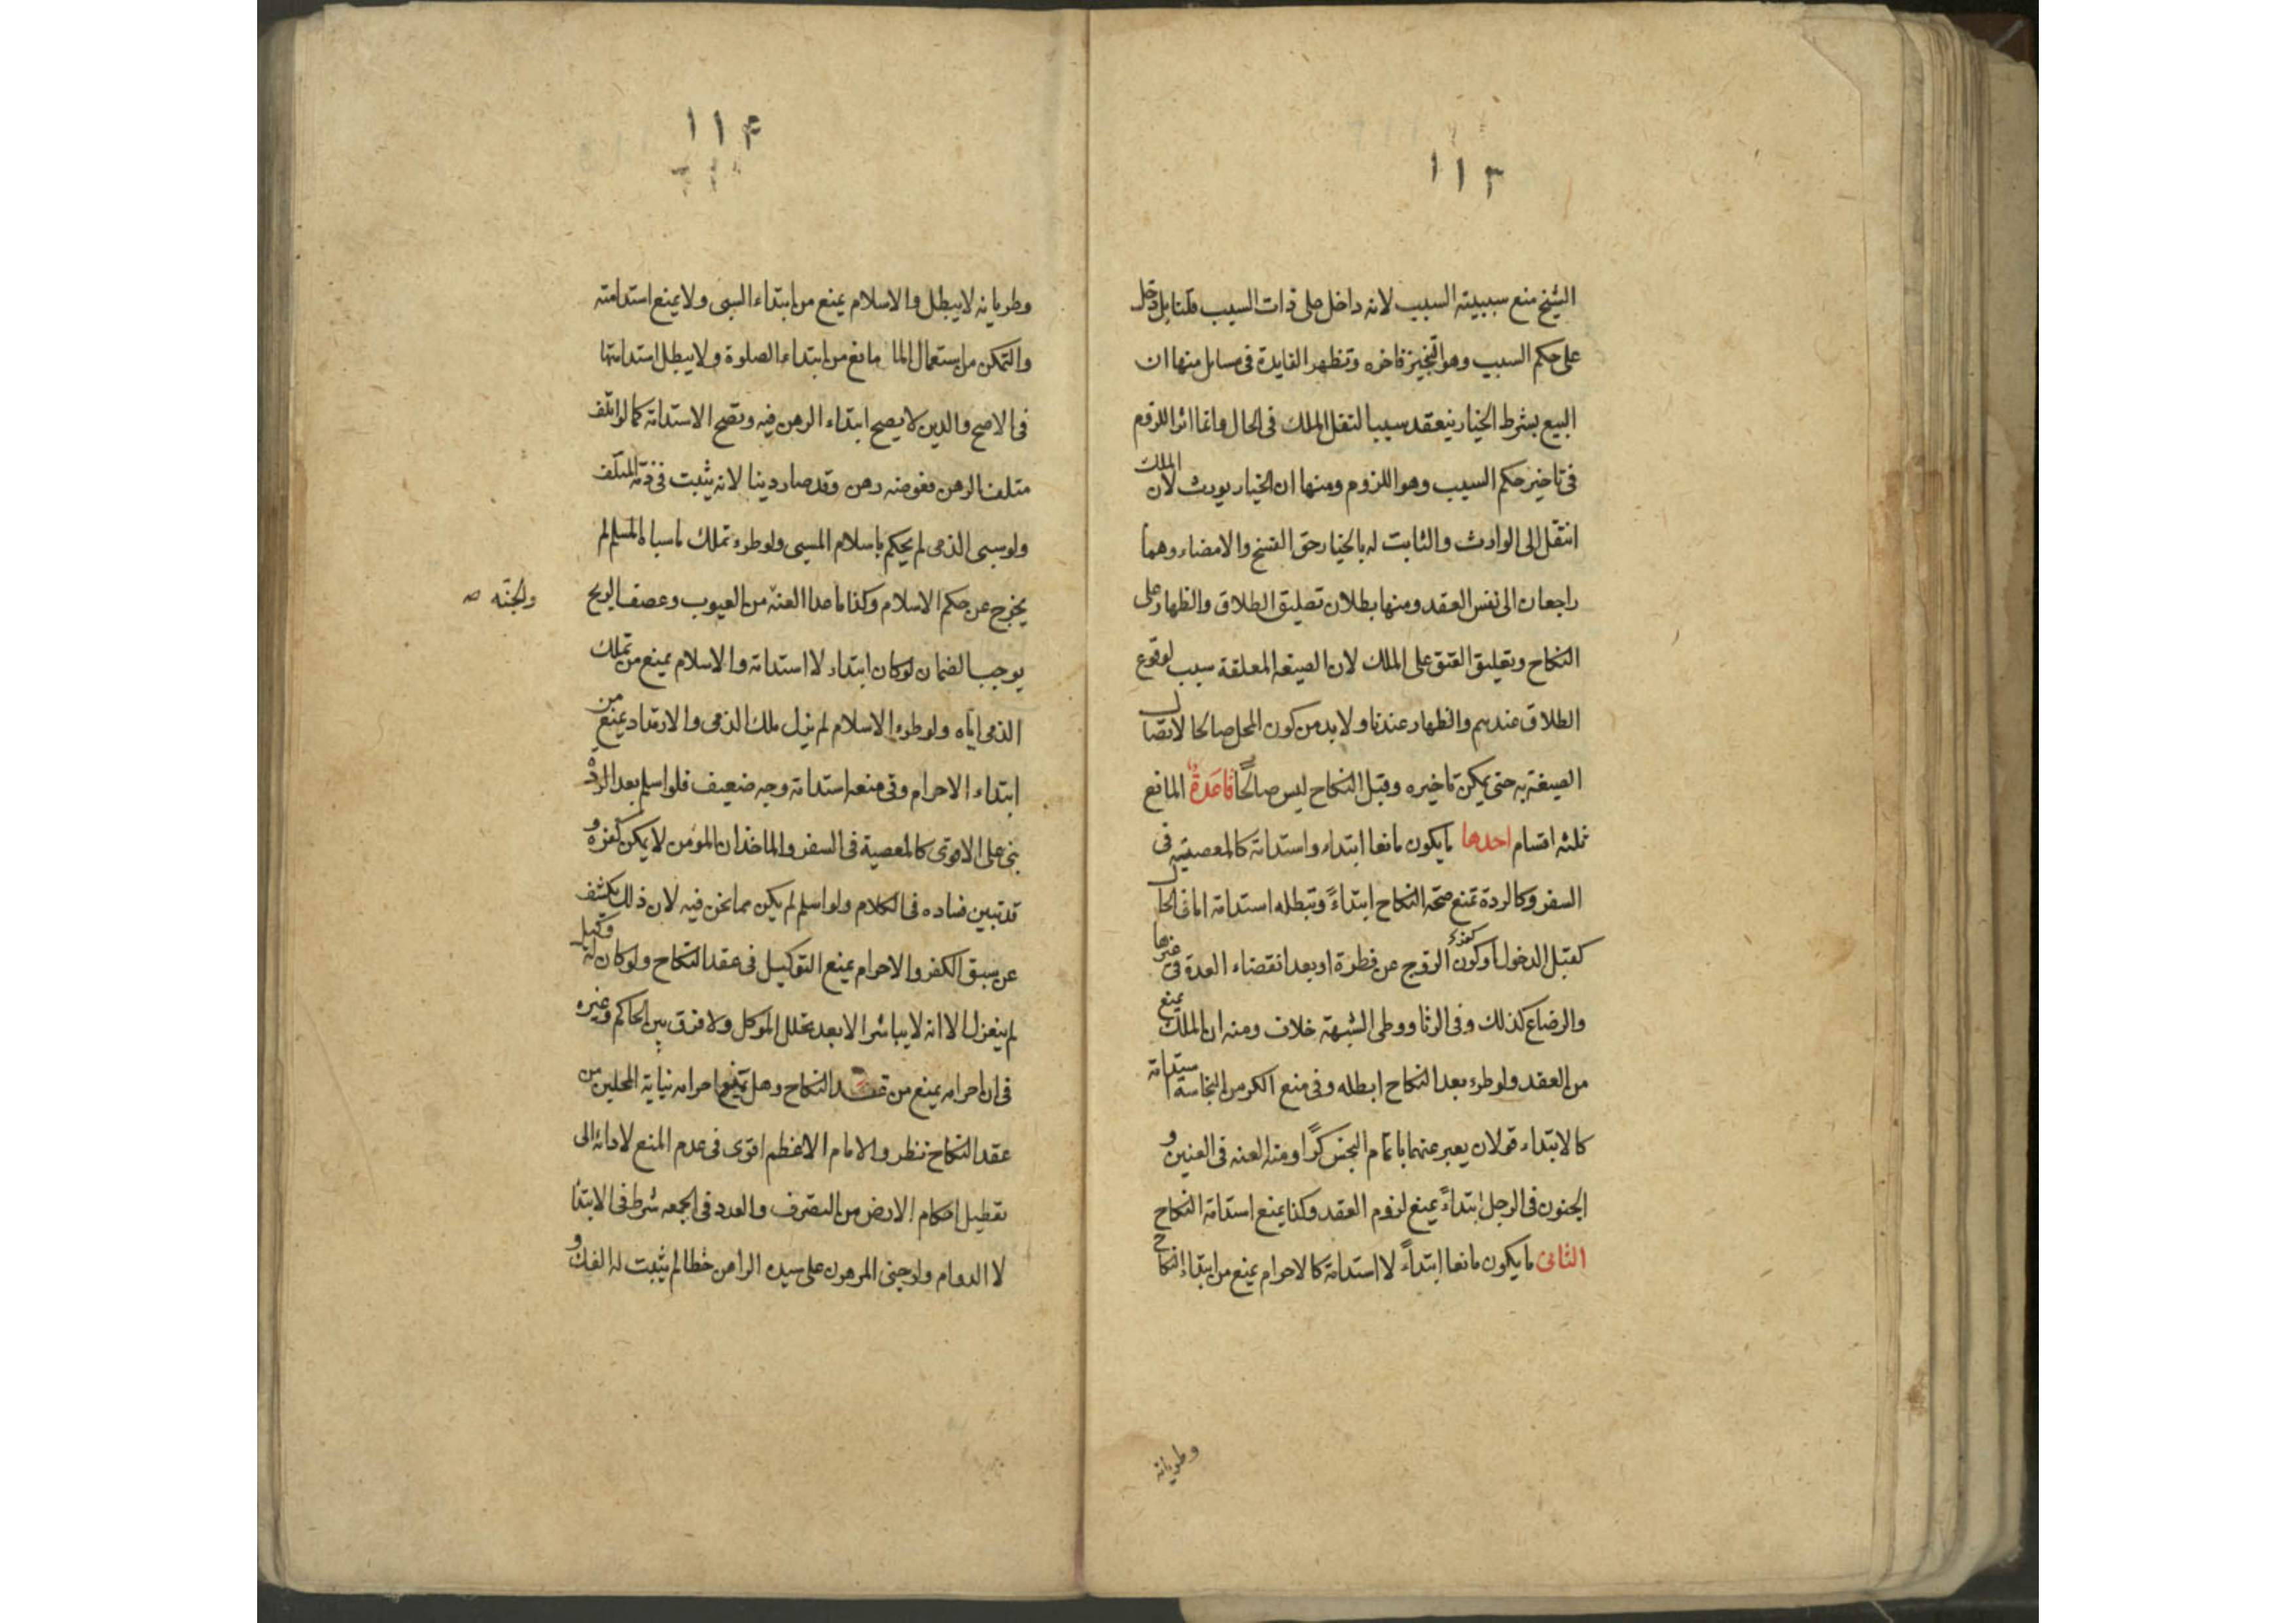 ١١٣
الشيخ منع سببيته السبب لانه داخل على ذات السبب قلنا بل دخل
على حكم السبب وهو التنجيز فاخره وتظهر الفايدة فى مسايل منها ان
البيع بشرط الخيار ينعقد سببا لنقل الملك فى الحال وانما اثر اللزوم
فى تاخير حكم السبب وهو اللزوم ومنها ان الخيار يورث لان الملك
انتقل الى الوارث والثابت له بالخيار حق الفسخ والامضاء وهما
راجعان الى نفس العقد ومنها بطلان تعليق الطلاق والظهار على
النكاح وتعليق العتق على الملك لان الصيغه المعلقة سبب لوقوع
الطلاق عندهم والظهار عندنا ولا بد من كون المحل صالحا لاتصال
الصيغة به حتى يمكن تاخيره وقبل النكاح ليس صالحًا قاعدةٌ المانع
ثلثه اقسام احدها ما يكون مانعا ابتداء واستدامة كالمعصية فى
السفر وكالردة تمنع صحة النكاح ابتداءً وتبطله استدامة اما فى الحال
كقبل الدخول او كون كفره الزوج عن فطرة او بعد انقضاء العدة فى غيرها
والرضاع كذلك وفى الزنا ووطى الشبهة خلاف ومنه ان الملك يمنع
من العقد ولو طرء بعد النكاح ابطله وفى منع الكر من النجاسة استدامة
كالابتداء قولان يعبر عنهما باتمام النجس كرًا ومنه العنه فى العنين و
الجنون فى الرجل ابتداءً يمنع لزوم العقد وكذا يمنع استدامة النكاح
الثانى ما يكون مانعا ابتداءً لا استدامة كالاحرام يمنع من ابتداء النكاح
وطريانه
١١۴
وطريانه لا يبطل والاسلام يمنع من ابتداء السبى ولا يمنع استدامته
والتمكن من استعمال الما مانع من ابتداء الصلوة ولا يبطل استدامتها
فى الاصح والدين لا يصح ابتداء الرهن فيه وتصح الاستدامة كما لو اتلف
متلف الرهن فعوضه رهن وقد صار دينا لانه يثبت فى ذمة المتلف
ولو سبى الذمى لم يحكم باسلام المسبى ولو طرء تملك ما سباه المسلم لم
يخرج عن حكم الاسلام وكذا ما عدا العنة من العيوب وعصف الريح
والجنّه صه
يوجب الضمان لو كان ابتداء لا استدامة والاسلام يمنع من تملك
الذمى اياه ولو طرء الاسلام لم يزل ملك الذمى والارتداد يمنع من
ابتداء الاحرام وفى منعه استدامة وجه ضعيف فلو اسلم بعد الردة
بنى على الاقوى كالمعصية فى السفر والماخذ ان المؤمن لا يمكن كفره و
قد تبين فساده فى الكلام ولو اسلم لم يكن مما نحن فيه لان ذلك يكشف
عن سبق الكفر والاحرام يمنع التوكيل فى عقد النكاح ولو كان له وكيل
لم ينعزل الا انه لا يباشر الا بعد تحلل الموكل ولا فرق بين الحاكم وغيره
فى ان احرامه يمنع من عقد النكاح وهل يمنع احرامه نيابة المحلين من
عقد النكاح نظر والامام الاعظم اقوى فى عدم المنع لادائه الى
تعطيل احكام الارض من التصرف والعدد فى الجمعه شرط فى الابتدا
لا الدوام ولو جنى المرهون على سيده الراهن خطا لم يثبت له الفك و